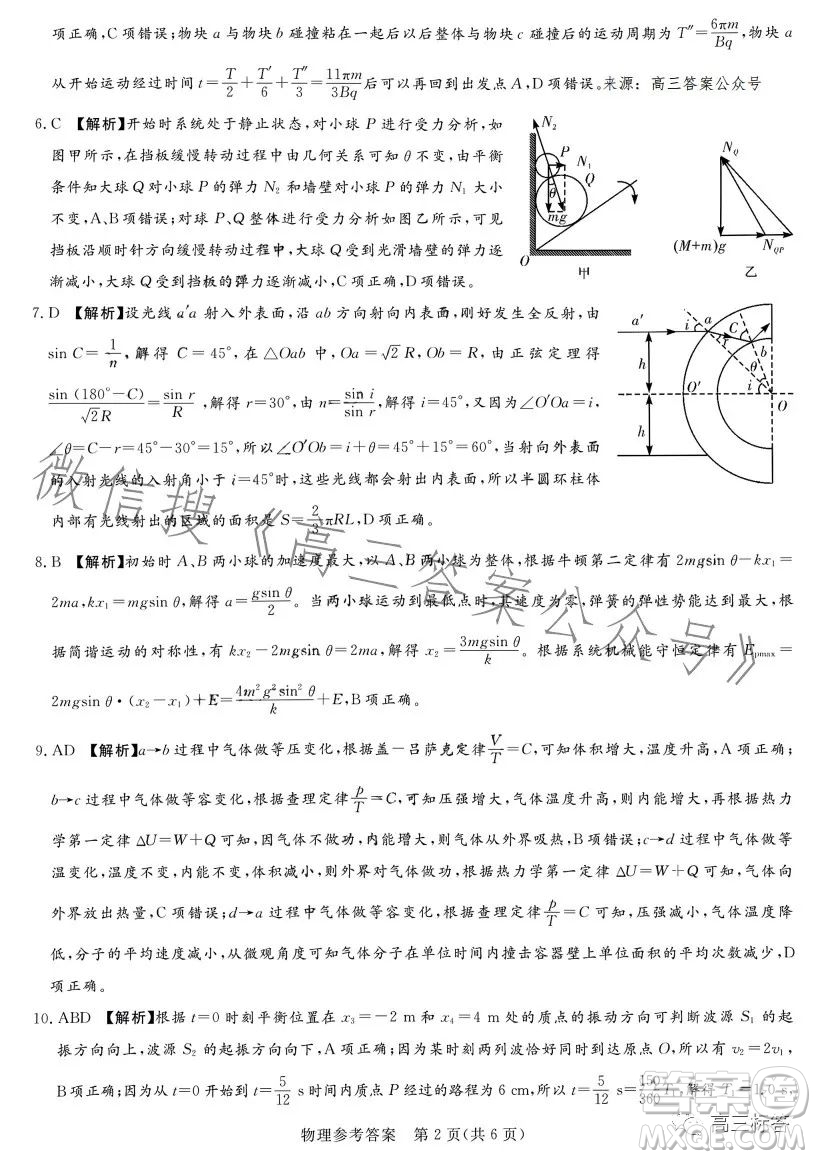 项正确,C项错误;物块a与物块b碰撞粘在一起后以后整体与物块c碰撞后的运动周期为T″=6πm/Bq,物块a
从开始运动经过时间t=T/2+T′/6+T″/3=11πm/3Bq后可以再回到出发点A,D项错误。来源:高三答案公众号
6. C 【解析】开始时系统处于静止状态,对小球P进行受力分析,如
图甲所示,在挡板缓慢转动过程中由几何关系可知θ不变,由平衡
条件知大球Q对小球P的弹力N₂和墙壁对小球P的弹力N₁大小
不变,A、B项错误;对球P、Q整体进行受力分析如图乙所示,可见
挡板沿顺时针方向缓慢转动过程中,大球Q受到光滑墙壁的弹力逐
渐减小,大球Q受到挡板的弹力逐渐减小,C项正确,D项错误。
N₂
P
N₁
Q
θ
mg
O
甲
N_Q
(M+m)g
N_QP
乙
7. D 【解析】设光线a′a射入外表面,沿ab方向射向内表面,刚好发生全反射,由
sin C=1/n,解得C=45°,在△Oab中,Oa=√2R,Ob=R,由正弦定理得
sin(180°-C)/√2R=sin r/R,解得r=30°,由n=sin i/sin r,解得i=45°,又因为∠O′Oa=i,
∠θ=C-r=45°-30°=15°,所以∠O′Ob=i+θ=45°+15°=60°,当射向外表面
的入射光线的入射角小于i=45°时,这些光线都会射出内表面,所以半圆环柱体
内部有光线射出的区域的面积是S=2/3πRL,D项正确。
a′
i
a
r
C
b
h
θ
O′
i
O
h
8. B 【解析】初始时A、B两小球的加速度最大,以A、B两小球为整体,根据牛顿第二定律有2mgsin θ-kx₁=
2ma,kx₁=mgsin θ,解得a=gsin θ/2。当两小球运动到最低点时,其速度为零,弹簧的弹性势能达到最大,根
据简谐运动的对称性,有kx₂-2mgsin θ=2ma,解得x₂=3mgsin θ/k。根据系统机械能守恒定律有Epmax=
2mgsin θ·(x₂-x₁)+E=4m²g²sin²θ/k+E,B项正确。
9. AD 【解析】a→b过程中气体做等压变化,根据盖-吕萨克定律V/T=C,可知体积增大,温度升高,A项正确;
b→c过程中气体做等容变化,根据查理定律p/T=C,可知压强增大,气体温度升高,则内能增大,再根据热力
学第一定律ΔU=W+Q可知,因气体不做功,内能增大,则气体从外界吸热,B项错误;c→d过程中气体做等
温变化,温度不变,内能不变,体积减小,则外界对气体做功,根据热力学第一定律ΔU=W+Q可知,气体向
外界放出热量,C项错误;d→a过程中气体做等容变化,根据查理定律p/T=C可知,压强减小,气体温度降
低,分子的平均速度减小,从微观角度可知气体分子在单位时间内撞击容器壁上单位面积的平均次数减少,D
项正确。
10. ABD 【解析】根据t=0时刻平衡位置在x₃=-2 m和x₄=4 m处的质点的振动方向可判断波源S₁的起
振方向向上,波源S₂的起振方向向下,A项正确;因为某时刻两列波恰好同时到达原点O,所以有v₂=2v₁,
B项正确;因为从t=0开始到t=5/12 s时间内质点P经过的路程为6 cm,所以t=5/12 s=150/360T,解得T=1.0 s,
物理参考答案 第2页(共6页)
微信搜《高三答案公众号》
高三标答
答案圈
MXQE.COM